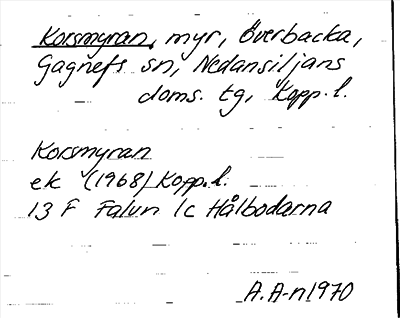 Korsmyran, myr, Överbacka,
Gagnefs sn, Nedansiljans
doms. tg, Kopp. l.
Korsmyran
ek (1968) Kopp. l.
13 F Falun 1c Hålbodarna
A. A-n 1970